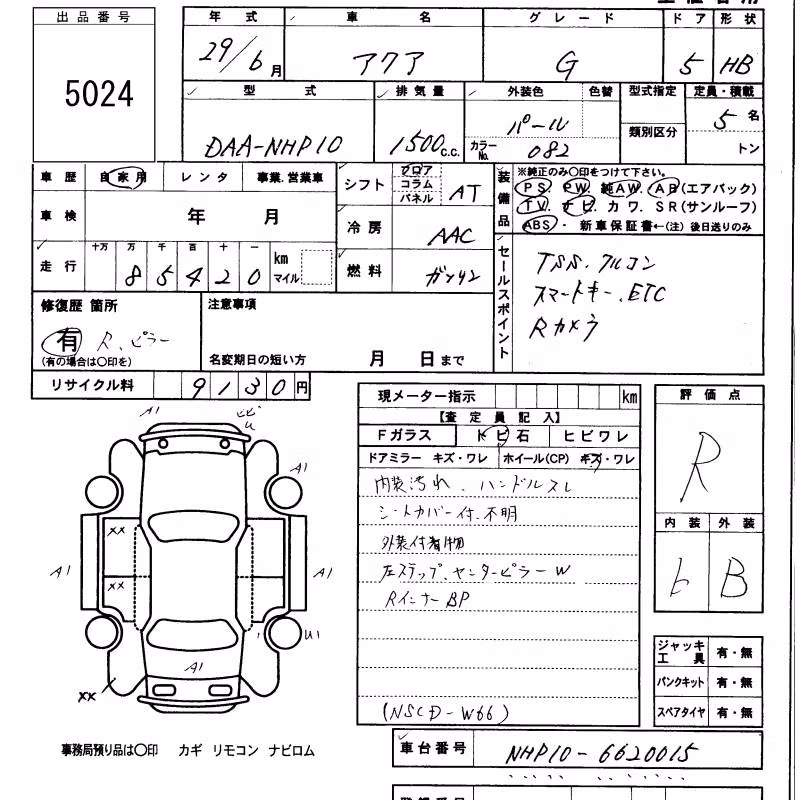 出品番号
5024
年式 車名 グレード ドア 形状
29/6月 アクア G 5 HB
型式 排気量 外装色 色替 型式指定 定員・積載
DAA-NHP10 1500c.c. パール カラーNo. 082 類別区分 5名 トン
車歴 自家用 レンタ 事業.営業車
車検 年 月
走行 十万 万 千 百 十 一 km マイル
85420
シフト フロア コラム パネル AT
冷房 AAC
燃料 ガソリン
装備品 ※純正のみ○印をつけて下さい。
PS. PW. 純AW. AB(エアバック)
TV. ナビ. カワ. SR(サンルーフ)
ABS・ 新車保証書←(注)後日送りのみ
セールスポイント
TSS.クルコン
スマートキー.ETC
Rカメラ
修復歴 箇所
有 R.ピラー
(有の場合は○印を)
注意事項
名変期日の短い方 月 日まで
リサイクル料 9130円
現メーター指示 km
【査定員記入】
Fガラス トビ石 ヒビワレ
ドアミラー キズ・ワレ ホイール(CP) キズ・ワレ
内装汚れ.ハンドルスレ
シートカバー付.不明
外装付着物
左ステップ.センターピラーW
RインナーBP
(NSCD-W66)
評価点
R
内装 外装
B
ジャッキ工具 有・無
パンクキット 有・無
スペアタイヤ 有・無
A1
ヒビ
A1
XX
A1 XX A1
U1
A1
XX
事務局預り品は○印 カギ リモコン ナビロム
車台番号 NHP10-6620015